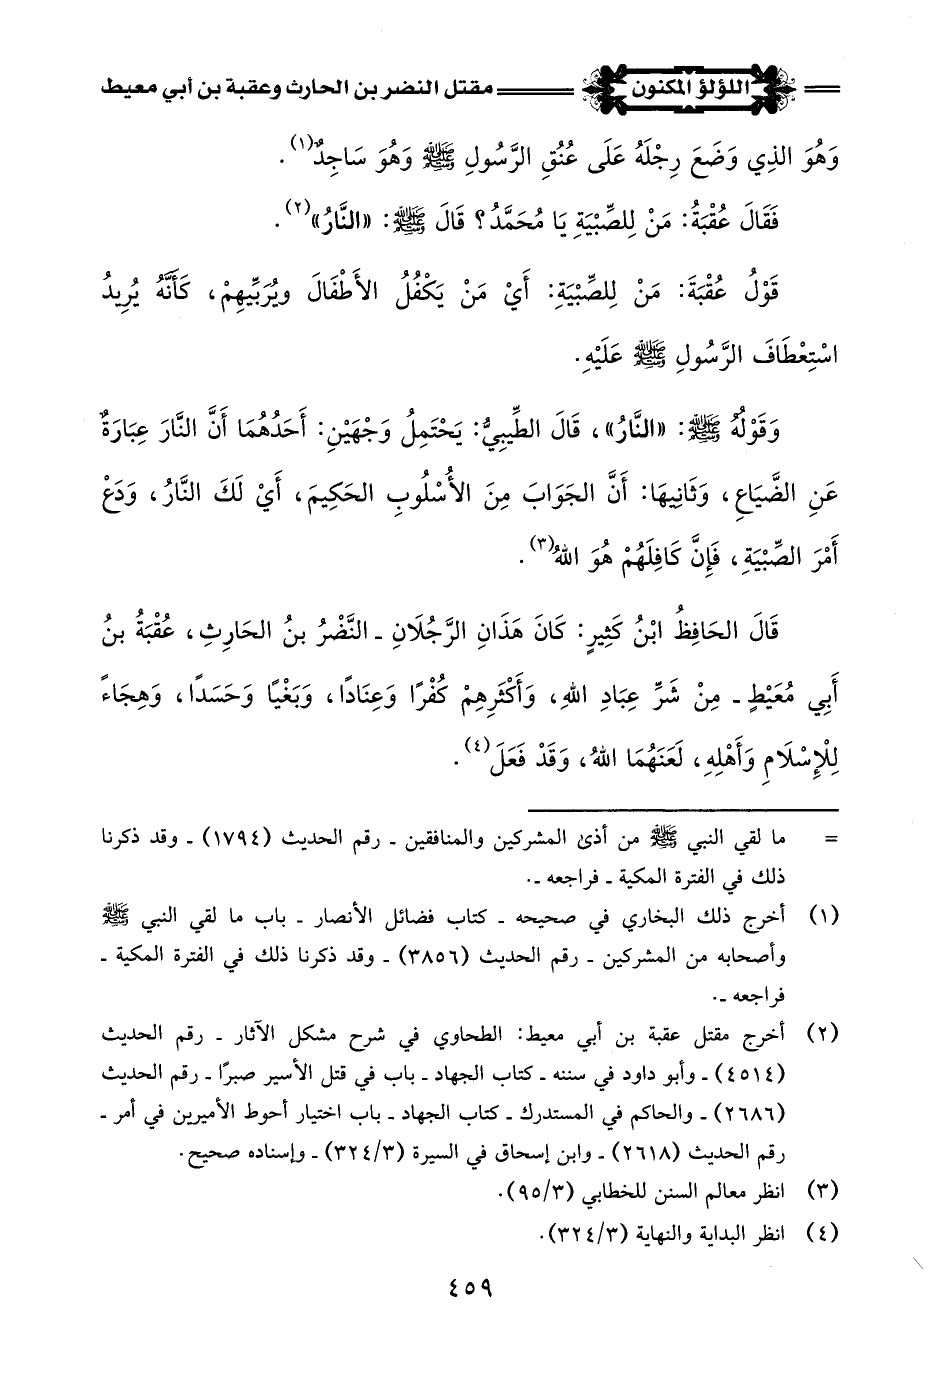 اللؤلؤ المكنون مقتل النضر بن الحارث وعقبة بن أبي معيط
وَهُوَ الذِي وَضَعَ رِجْلَهُ عَلَى عُنُقِ الرَّسُولِ ﷺ وَهُوَ سَاجِدٌ(١).
فَقَالَ عُقْبَةُ: مَنْ لِلصِّبْيَةِ يَا مُحَمَّدُ؟ قَالَ ﷺ: «النَّارُ»(٢).
قَوْلُ عُقْبَةَ: مَنْ لِلصِّبْيَةِ: أَيْ مَنْ يَكْفُلُ الأَطْفَالَ ويُرَبِّيهِمْ، كَأنَّهُ يُرِيدُ
اسْتِعْطَافَ الرَّسُولِ ﷺ عَلَيْهِ.
وَقَوْلُهُ ﷺ: «النَّارُ»، قَالَ الطِّيبِيُّ: يَحْتَمِلُ وَجْهَيْنِ: أَحَدُهُمَا أَنَّ النَّارَ عِبَارَةٌ
عَنِ الضَّيَاعِ، وَثَانِيهَا: أَنَّ الجَوَابَ مِنَ الأُسْلُوبِ الحَكِيمَ، أَيْ لَكَ النَّارُ، وَدَعْ
أَمْرَ الصِّبْيَةِ، فَإِنَّ كَافِلَهُمْ هُوَ اللهُ(٣).
قَالَ الحَافِظُ ابْنُ كَثِيرٍ: كَانَ هَذَانِ الرَّجُلَانِ ـ النَّضْرُ بنُ الحَارِثِ، عُقْبَةُ بنُ
أَبِي مُعَيْطٍ ـ مِنْ شَرِّ عِبَادِ اللهِ، وَأَكْثَرِهِمْ كُفْرًا وَعِنَادًا، وَبَغْيًا وَحَسَدًا، وَهِجَاءً
لِلْإِسْلَامِ وَأَهْلِهِ، لَعَنَهُمَا اللهُ، وَقَدْ فَعَلَ(٤).
= ما لقي النبي ﷺ من أذىٰ المشركين والمنافقين ـ رقم الحديث (١٧٩٤) ـ وقد ذكرنا
ذلك في الفترة المكية ـ فراجعه ـ.
(١) أخرج ذلك البخاري في صحيحه ـ كتاب فضائل الأنصار ـ باب ما لقي النبي ﷺ
وأصحابه من المشركين ـ رقم الحديث (٣٨٥٦) ـ وقد ذكرنا ذلك في الفترة المكية ـ
فراجعه ـ.
(٢) أخرج مقتل عقبة بن أبي معيط: الطحاوي في شرح مشكل الآثار ـ رقم الحديث
(٤٥١٤) ـ وأبو داود في سننه ـ كتاب الجهاد ـ باب في قتل الأسير صبرًا ـ رقم الحديث
(٢٦٨٦) ـ والحاكم في المستدرك ـ كتاب الجهاد ـ باب اختيار أحوط الأميرين في أمر ـ
رقم الحديث (٢٦١٨) ـ وابن إسحاق في السيرة (٣٢٤/٣) ـ وإسناده صحيح.
(٣) انظر معالم السنن للخطابي (٩٥/٣).
(٤) انظر البداية والنهاية (٣٢٤/٣).
٤٥٩